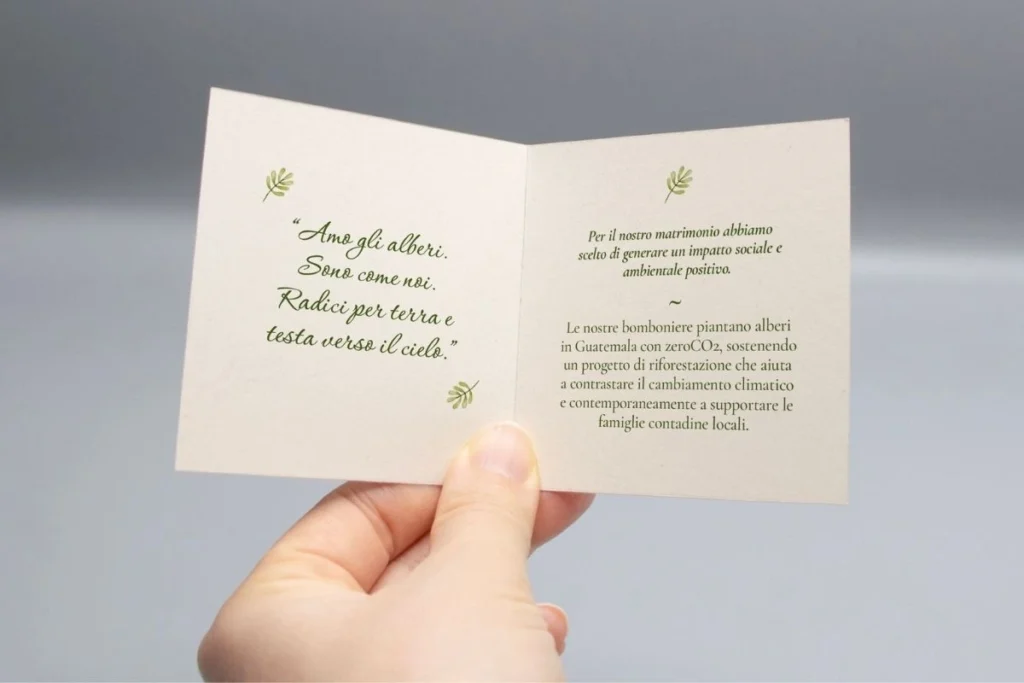 “Amo gli alberi.
Sono come noi.
Radici per terra e
testa verso il cielo.”
Per il nostro matrimonio abbiamo
scelto di generare un impatto sociale e
ambientale positivo.
~
Le nostre bomboniere piantano alberi
in Guatemala con zeroCO2, sostenendo
un progetto di riforestazione che aiuta
a contrastare il cambiamento climatico
e contemporaneamente a supportare le
famiglie contadine locali.